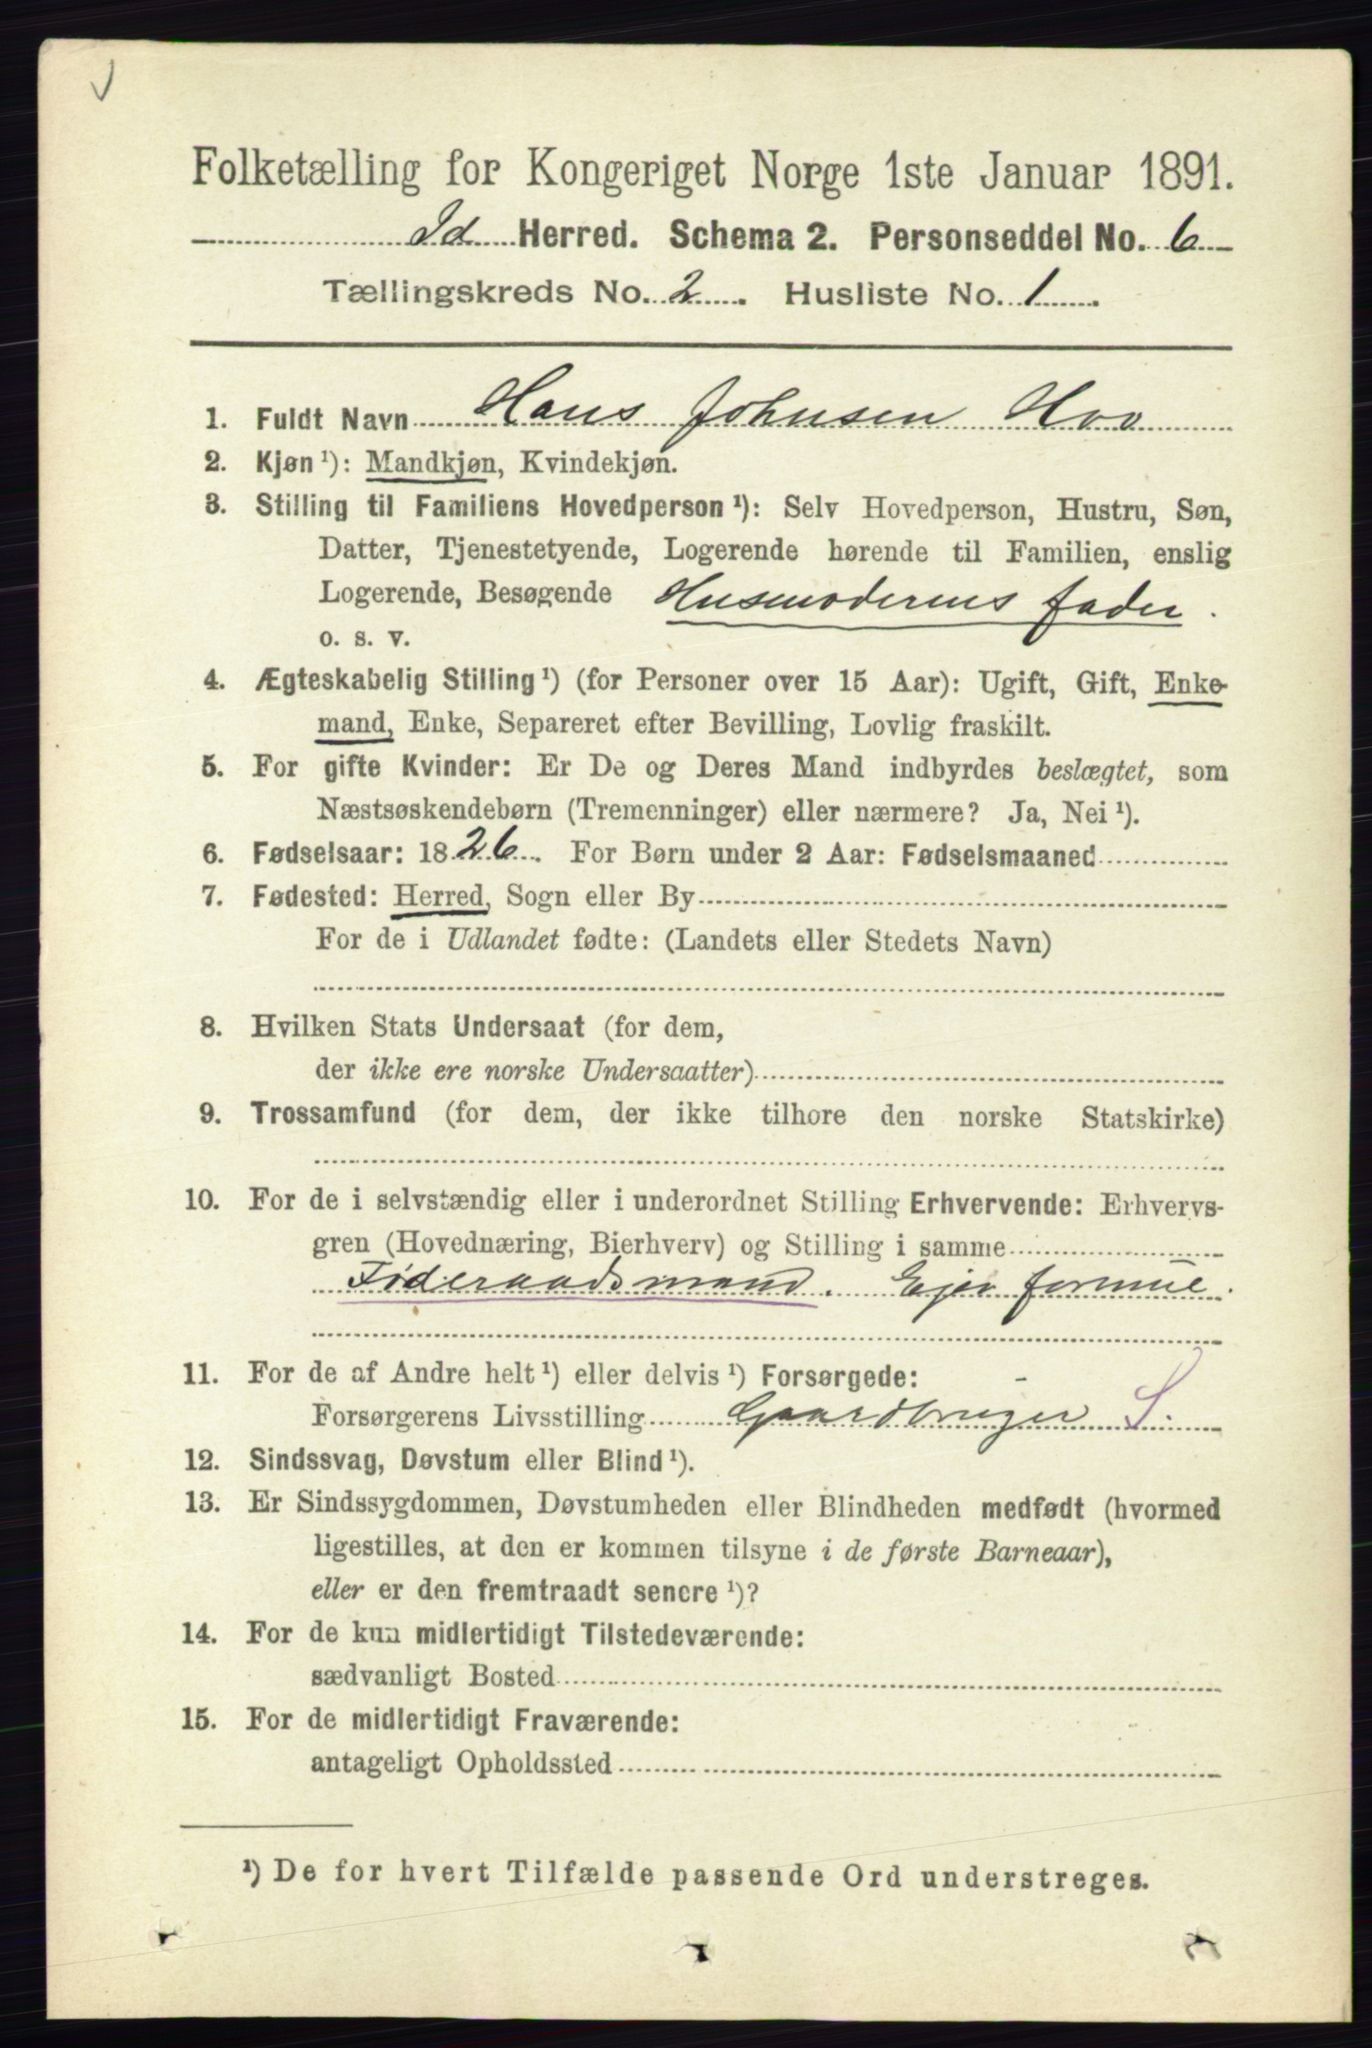 Folketælling for Kongeriget Norge 1ste Januar 1891.
Id Herred. Schema 2. Personseddel No. 6
Tællingskreds No. 2. Husliste No. 1.
1. Fuldt Navn Hans Johnsen Hov
2. Kjøn ¹): Mandkjøn, Kvindekjøn.
3. Stilling til Familiens Hovedperson ¹): Selv Hovedperson, Hustru, Søn,
Datter, Tjenestetyende, Logerende hørende til Familien, enslig
Logerende, Besøgende Husmoderens fader.
o. s. v.
4. Ægteskabelig Stilling ¹) (for Personer over 15 Aar): Ugift, Gift, Enke-
mand, Enke, Separeret efter Bevilling, Lovlig fraskilt.
5. For gifte Kvinder: Er De og Deres Mand indbyrdes beslægtet, som
Næstsøskendebørn (Tremenninger) eller nærmere? Ja, Nei ¹).
6. Fødselsaar: 1826. For Børn under 2 Aar: Fødselsmaaned
7. Fødested: Herred, Sogn eller By
For de i Udlandet fødte: (Landets eller Stedets Navn)
8. Hvilken Stats Undersaat (for dem,
der ikke ere norske Undersaatter)
9. Trossamfund (for dem, der ikke tilhore den norske Statskirke)
10. For de i selvstændig eller i underordnet Stilling Erhvervende: Erhvervs-
gren (Hovednæring, Bierhverv) og Stilling i samme
Føderaadsmand. Ejer formue.
11. For de af Andre helt ¹) eller delvis ¹) Forsørgede: -
Forsørgerens Livsstilling Gaardbruger S.
12. Sindssvag, Døvstum eller Blind ¹).
13. Er Sindssygdommen, Døvstumheden eller Blindheden medfødt (hvormed
ligestilles, at den er kommen tilsyne i de første Barneaar),
eller er den fremtraadt senere ¹)?
14. For de kun midlertidigt Tilstedeværende:
sædvanligt Bosted
15. For de midlertidigt Fraværende:
antageligt Opholdssted
¹) De for hvert Tilfælde passende Ord understreges.